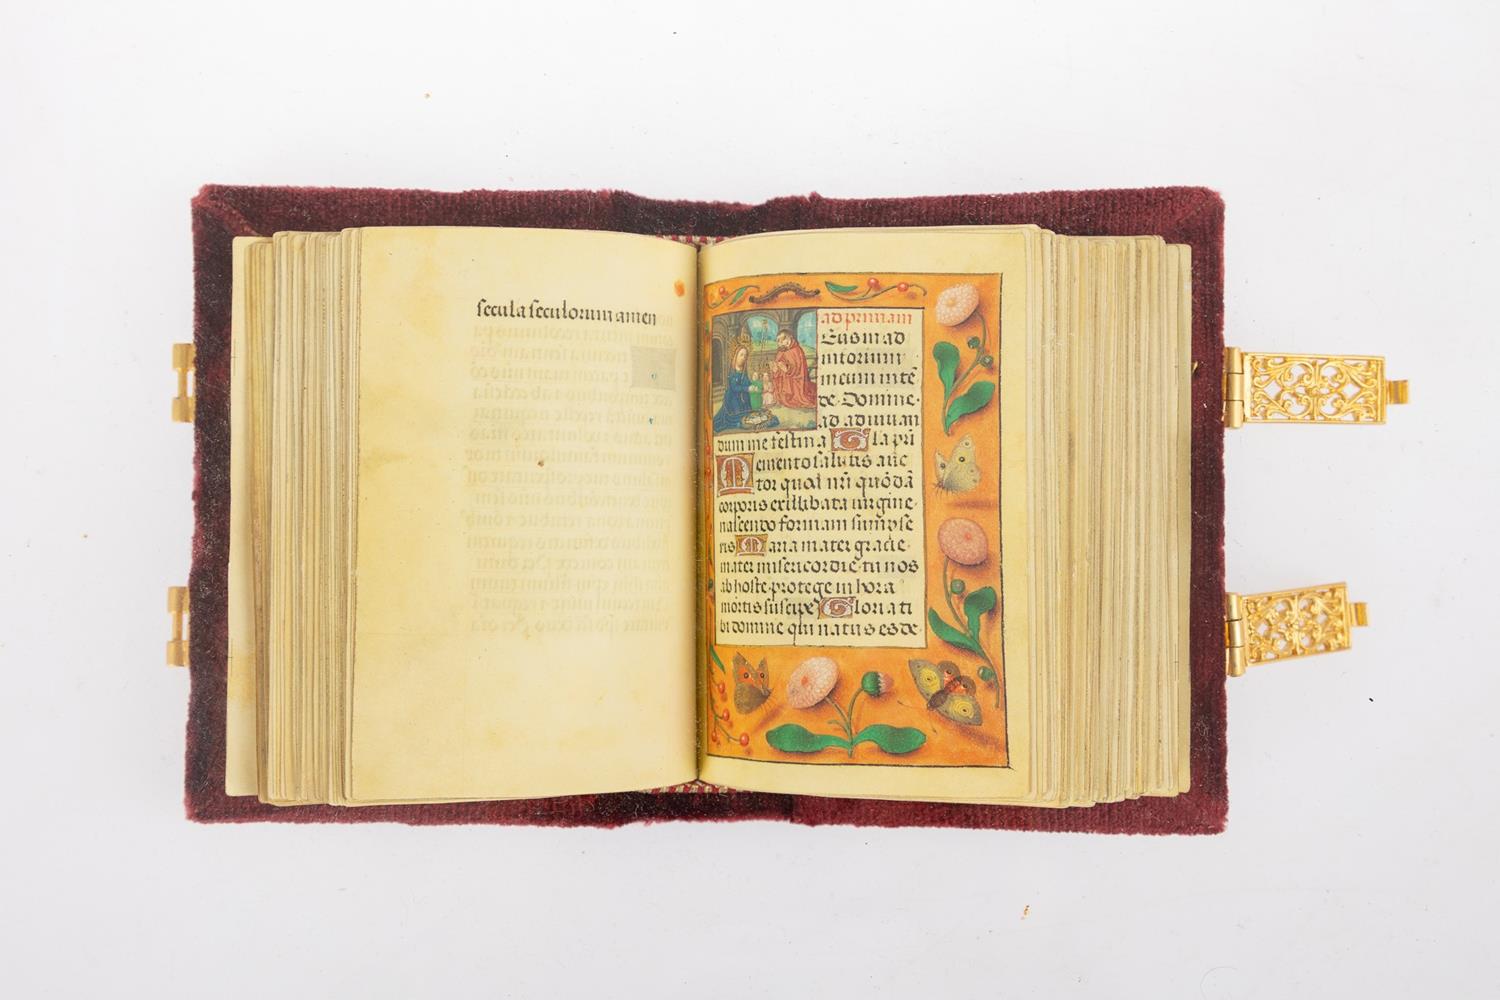 secula seculorum amen
ad primam
Eus in ad
iutorium
meum intē
de. Domine.
ad adiuuan
dum me festina Gla pr̄i
Memento salutis auc
tor quod nr̄i quōdā
corporis ex illibata uirgine.
nascendo formam sūmpse
ris Maria mater gracie.
mater misericordie. tu nos
ab hoste protege in hora
mortis suscipe Gloria ti
bi domine qui natus es de.